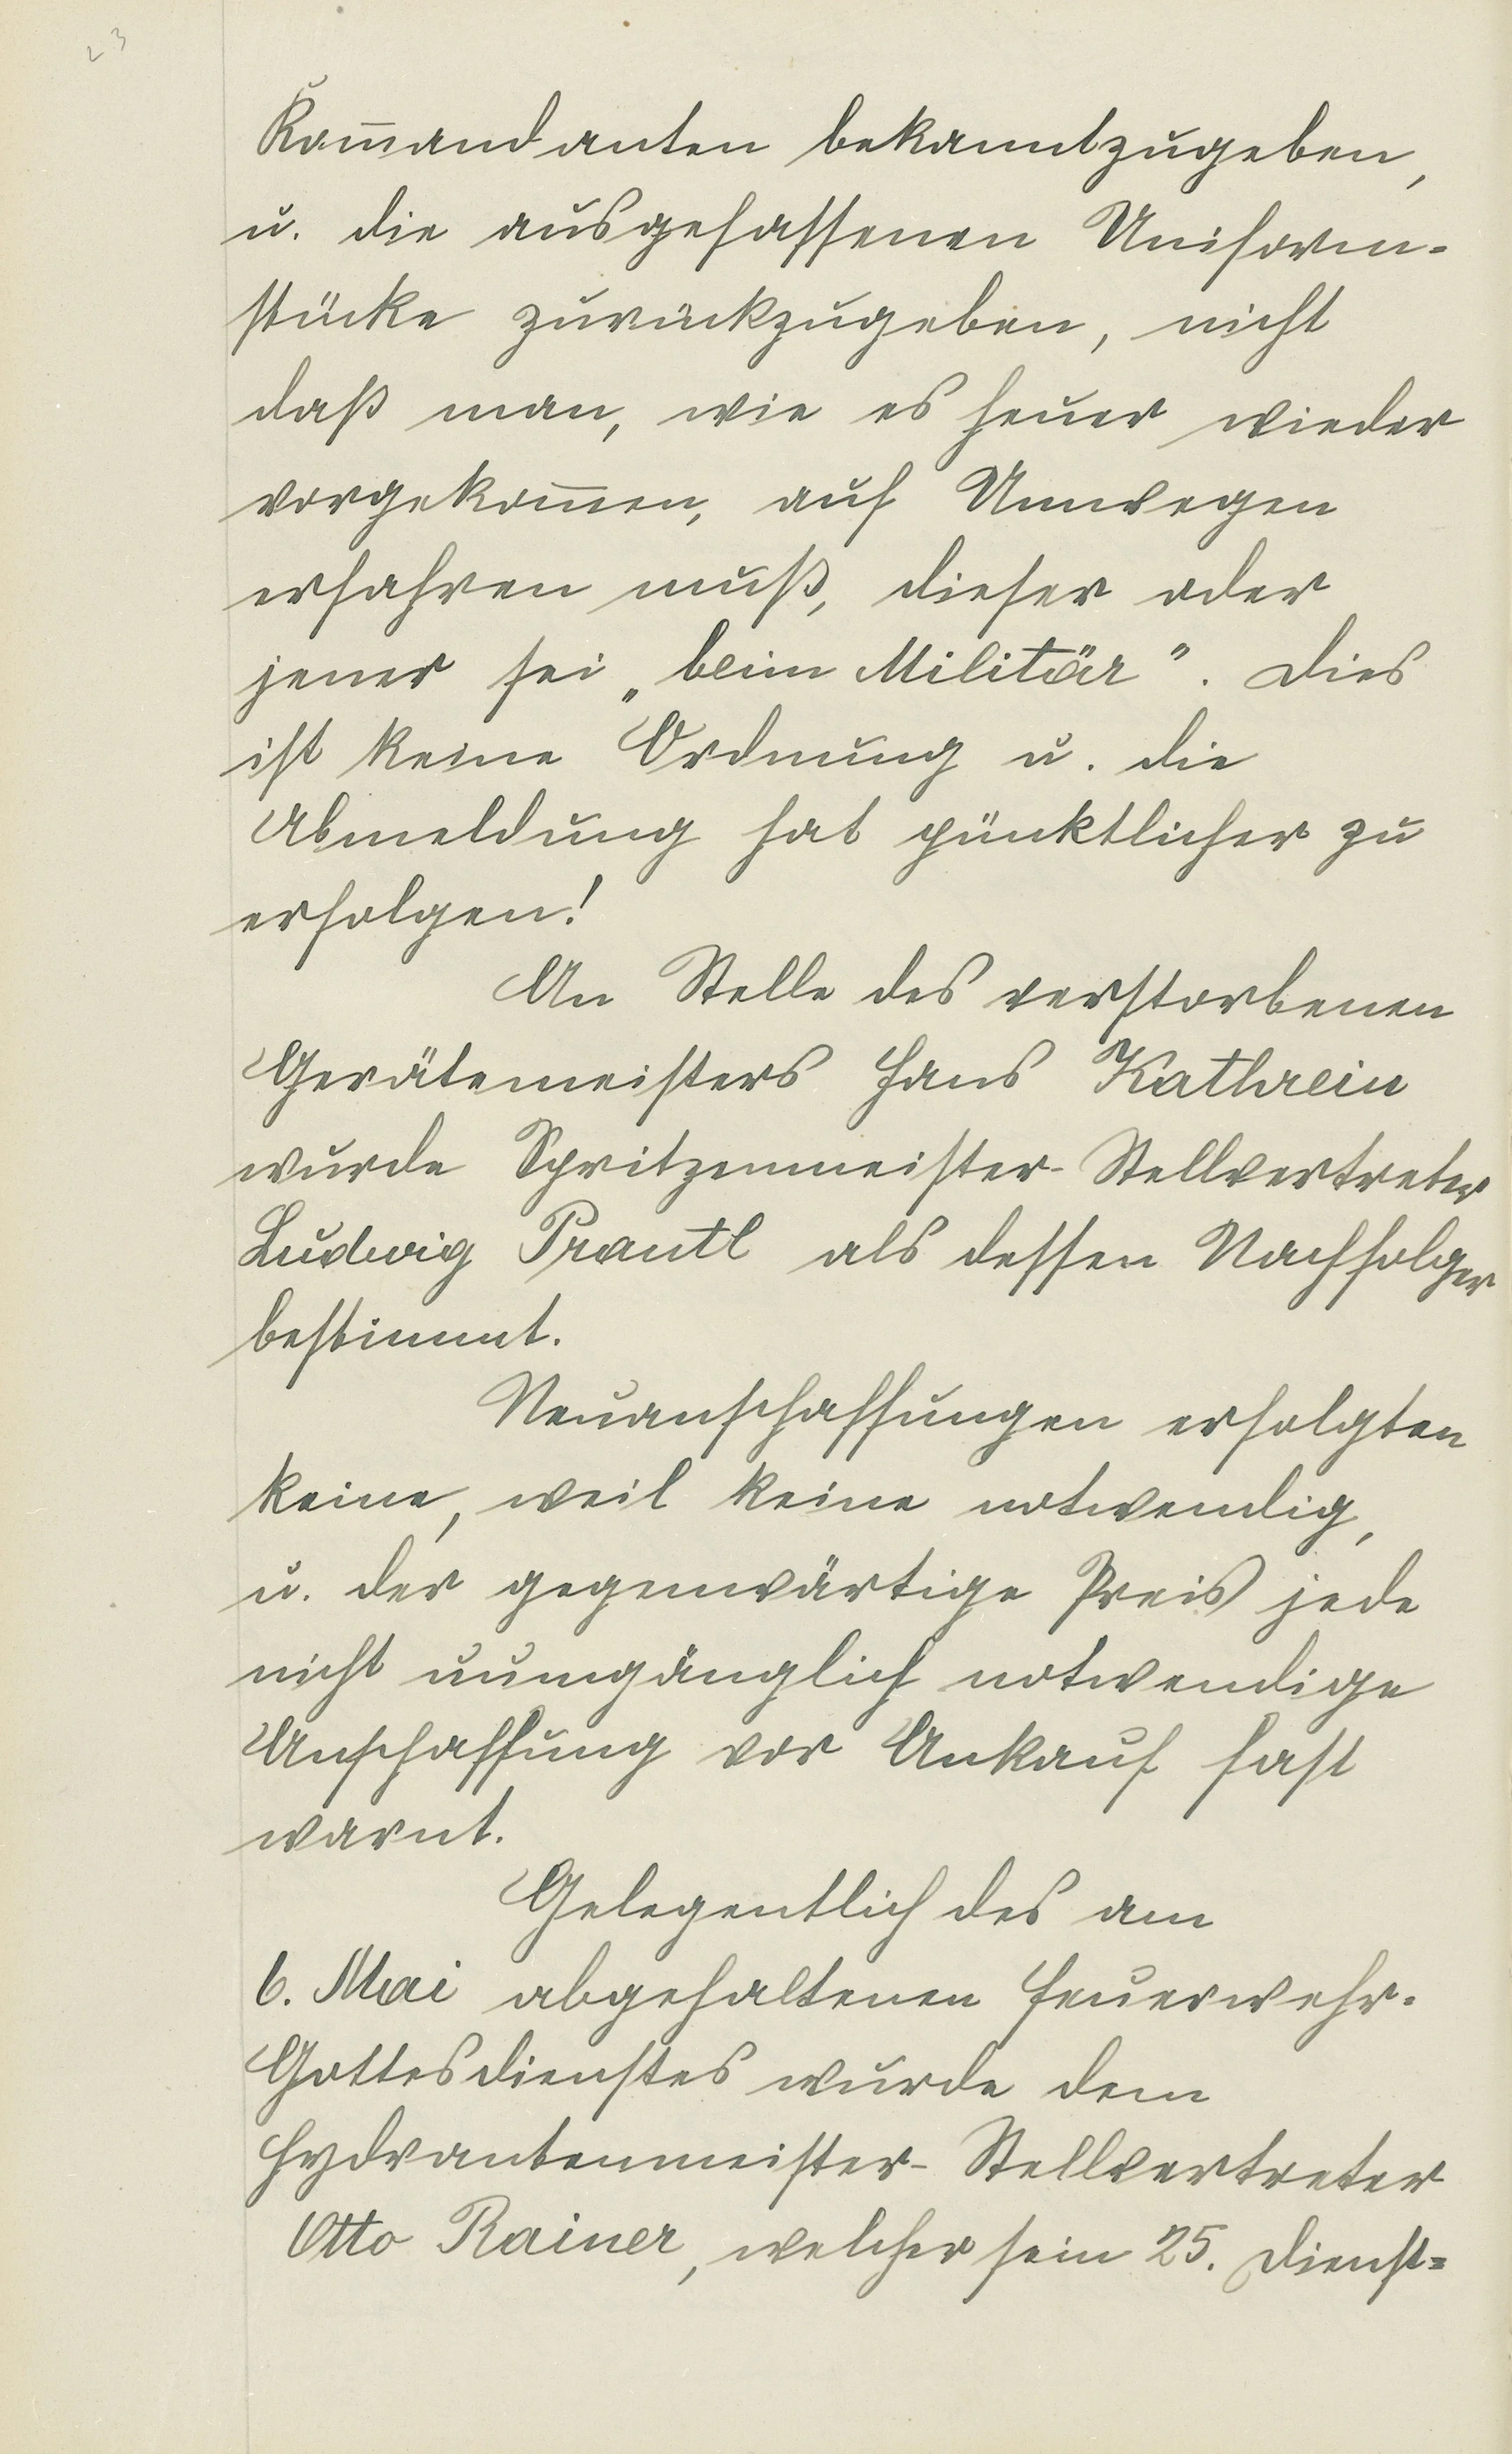 23
Kom̄andanten bekanntzugeben,
u. die ausgefassenen Uniform-
stücke zurückzugeben, nicht
daß man, wie es heuer wieder
vorgekom̄en, auf Umwegen
erfahren muß, dieser oder
jener sei „beim Militär". Dies
ist keine Ordnung u. die
Abmeldung hat pünktlicher zu
erfolgen!
An Stelle des verstorbenen
Gerätemeisters Hans Kathrein
wurde Spritzenmeister-Stellvertreter
Ludwig Prantl als dessen Nachfolger
bestimmt.
Neuanschaffungen erfolgten
keine, weil keine notwendig,
u. der gegenwärtige Preis jede
nicht uumgänglich notwendige
Anschaffung vor Ankauf fast
warnt.
Gelegentlich des am
6. Mai abgehaltenen Feuerwehr-
Gottesdienstes wurde dem
Hydrantenmeister-Stellvertreter
Otto Rainer, welcher sein 25. Dienst=